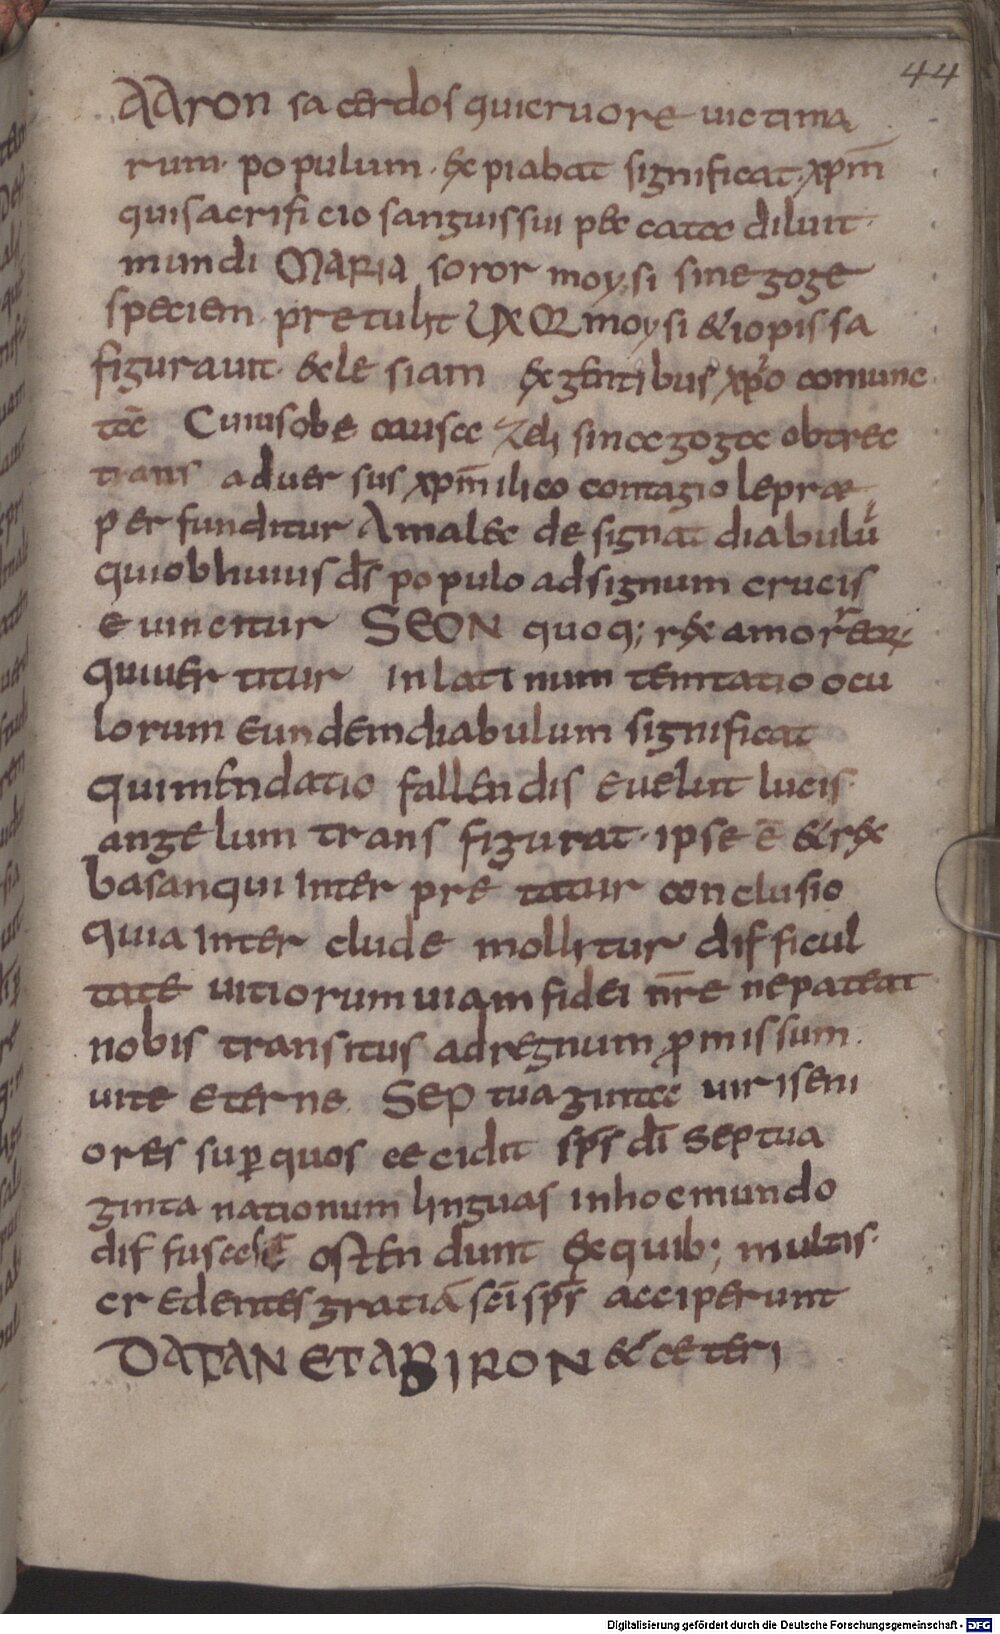 44
AAron sacerdos qui cruore uictima
rum. populum. expiabat significat. xp̄m
qui sacrificio sanguis sui peccata diluit.
mundi MARIA soror moysi sinegoge
speciem pretulit UXOR moysi &iopissa
figurauit. eclesiam ex gentibus xp̄o coniunc
tā Cuius obe causa zeli sinagoga obtrec
trans aduersus xp̄m ilico contagio lepræ
perfunditur Amalec designat diabulū
qui ob huius d̄s populo ad signum crucis
euincitur SEON quoq; rex amorreorꝝ
qui uertitur in latinum temtatio ocu
lorum eundem diabulum significat
qui mendatio fallendis euelut lucis.
angelum transfigurat. ipse ē & rex
basan qui interpretatur conclusio
quia interclude mollitur difficul
tate uitiorum uiam fidei nr̄e ne pateat
nobis transitus ad regnum ꝓmissum.
uite eterne. SEPtuaginta uiri seni
ores suꝑ quos cecidit sp̄s d̄i septua
ginta nationum linguas in hoc mundo
diffusas ostendunt ex quib; multis.
credentes gratiā sc̄i sp̄s acciperunt
DATAN ET ABIRON & ceteri
Digitalisierung gefördert durch die Deutsche Forschungsgemeinschaft - DFG